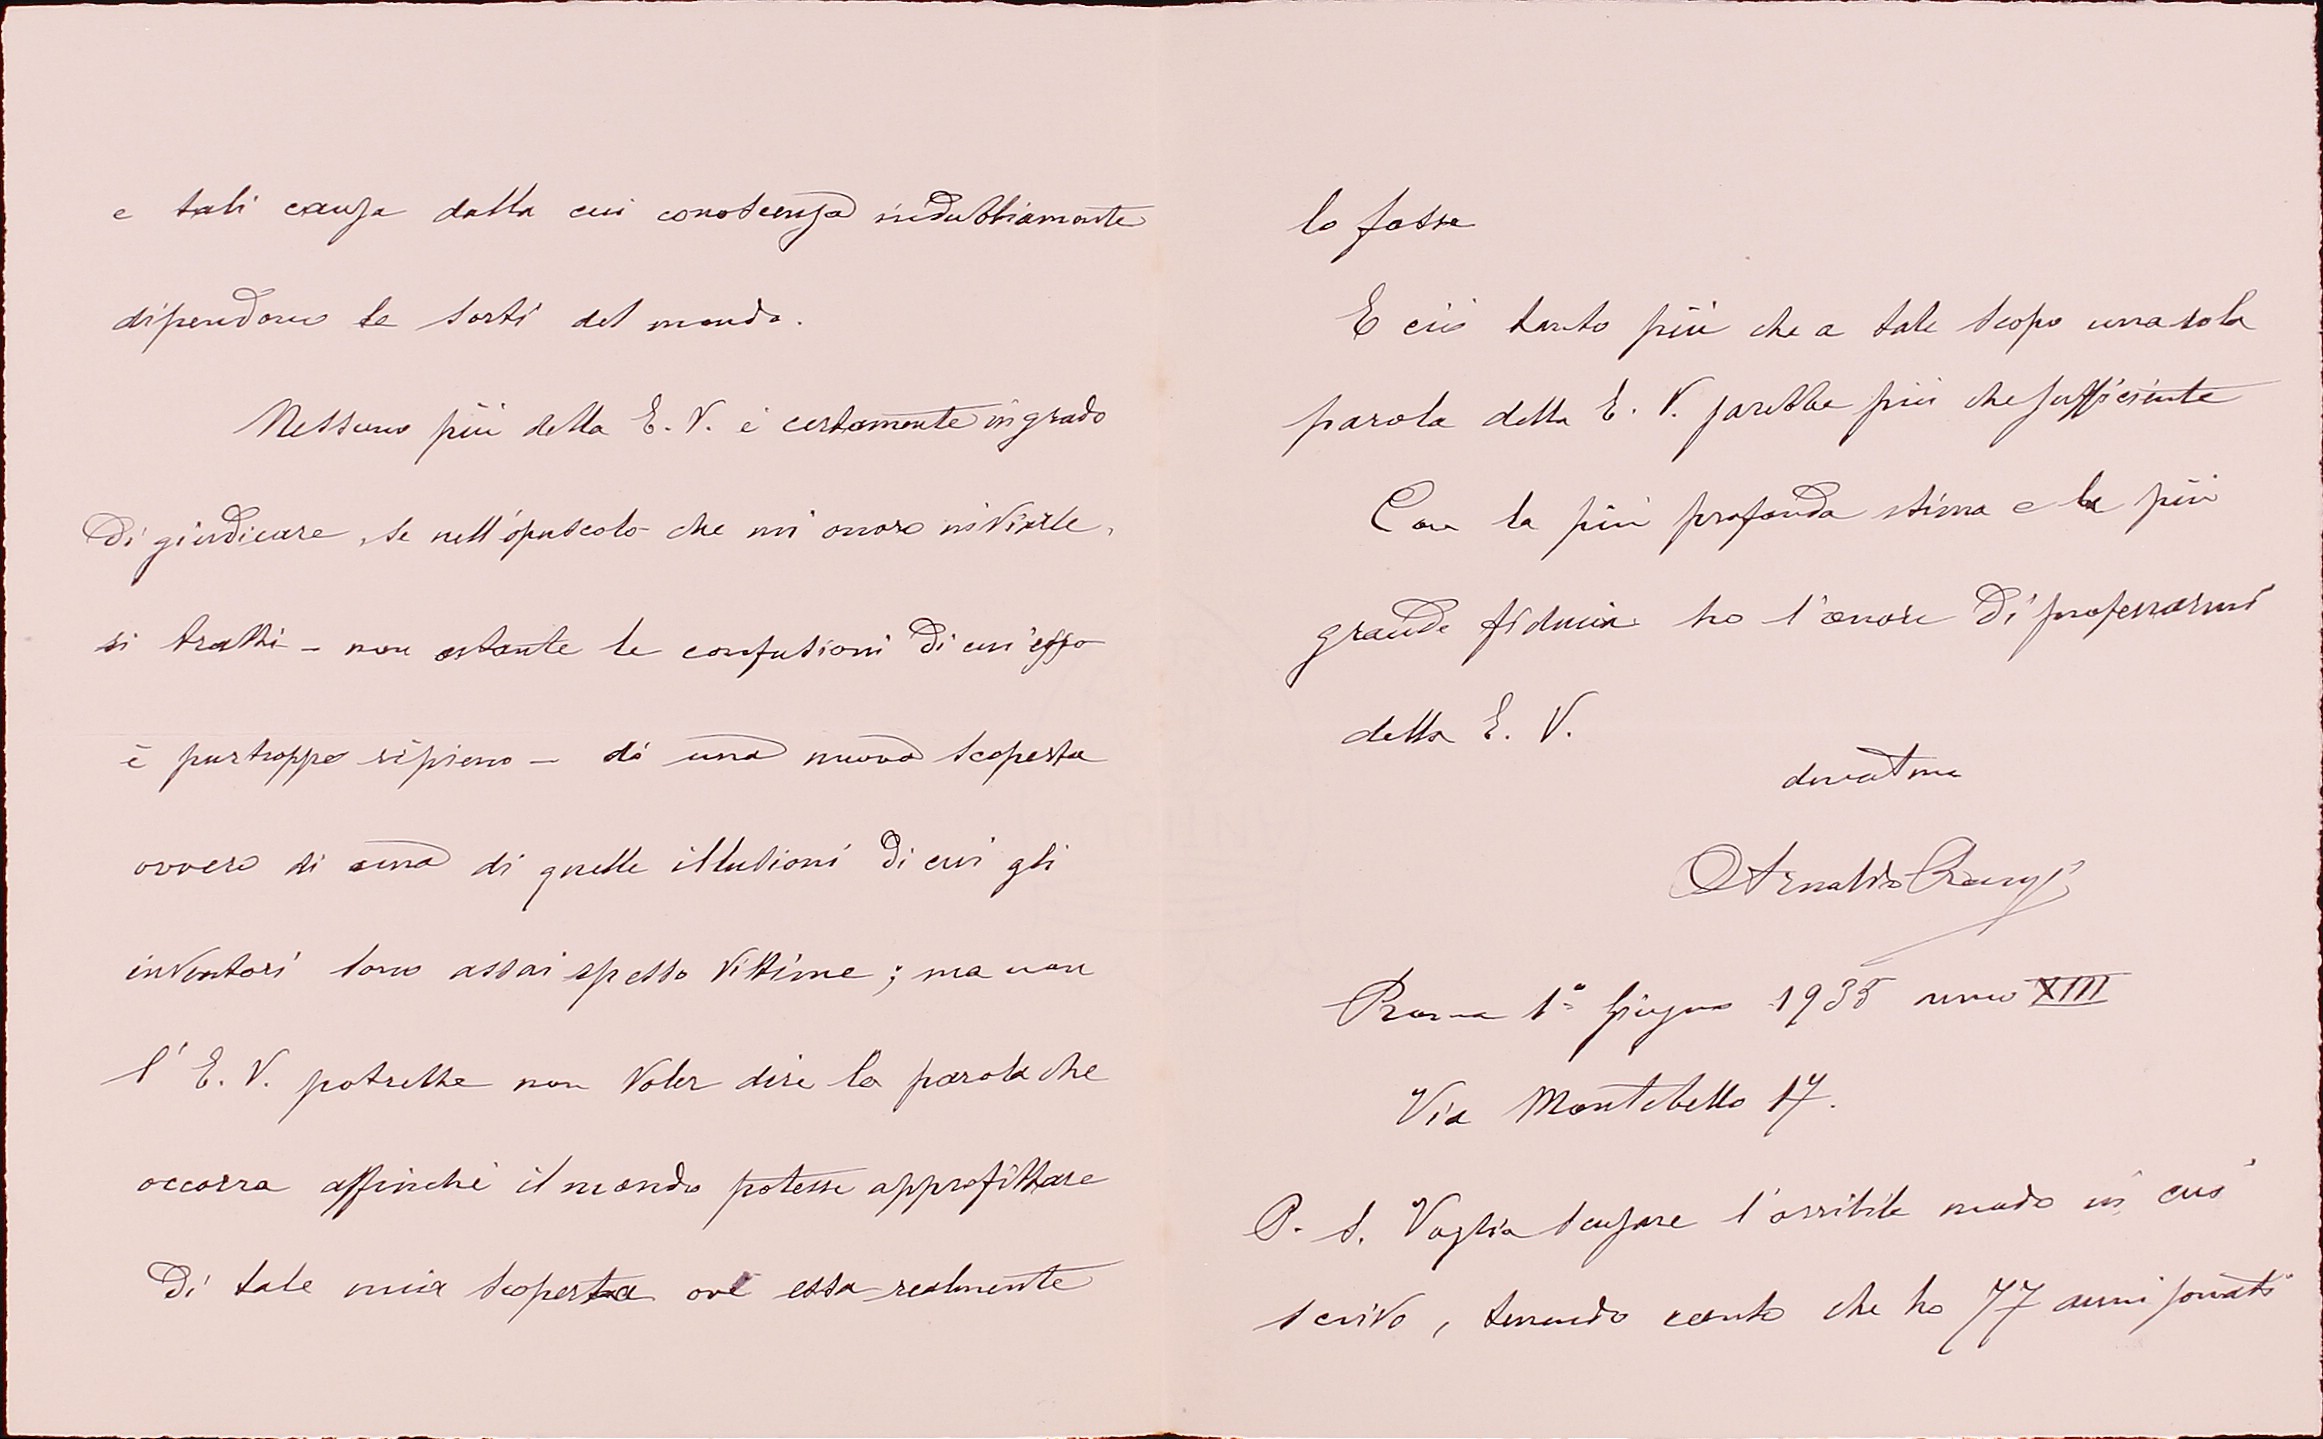 e tali cause dalla cui conoscenza indubbiamente
dipendono le sorti del mondo.
Nessuno più della E. V. è certamente in grado
di giudicare, se nell'opuscolo che mi onoro inviarle,
si tratti - non ostante le confusioni di cui esso
è purtroppo ripieno - di una nuova scoperta
ovvero di una di quelle illusioni di cui gli
inventori sono assai spesso vittime; ma non
l'E. V. potrebbe non voler dire la parola che
occorra affinché il mondo potesse approfittare
di tale mia scoperta ove essa realmente
lo fosse
E ciò tanto più che a tale scopo una sola
parola della E. V. sarebbe più che sufficiente
Con la più profonda stima e la più
grande fiducia ho l'onore di professarmi
della E. V.
Arnaldo
Roma 1º Giugno 1935 anno XIII
Via Montebello 17.
P. S. Voglia scusare l'orribile modo in cui
scrivo, tenendo conto che ho 77 anni sonati